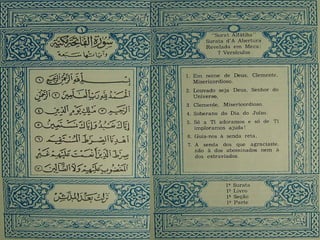 سورة الفاتحة مكية
وآياتها سبعة
بِسْمِ اللَّهِ الرَّحْمَٰنِ الرَّحِيمِ ①
الْحَمْدُ لِلَّهِ رَبِّ الْعَالَمِينَ ② الرَّحْمَٰنِ
الرَّحِيمِ ③ مَالِكِ يَوْمِ الدِّينِ ④
إِيَّاكَ نَعْبُدُ وَإِيَّاكَ نَسْتَعِينُ ⑤
اهْدِنَا الصِّرَاطَ الْمُسْتَقِيمَ ⑥
صِرَاطَ الَّذِينَ أَنْعَمْتَ عَلَيْهِمْ غَيْرِ
الْمَغْضُوبِ عَلَيْهِمْ وَلَا الضَّالِّينَ ⑦
نزلت بعد المدثر
"Surat Alfátiha"
Surata d'A Abertura
Revelada em Meca:
7 Versículos
1. Em nome de Deus, Clemente,
Misericordioso.
2. Louvado seja Deus, Senhor do
Universo,
3. Clemente, Misericordioso,
4. Soberano do Dia do Juízo.
5. Só a Ti adoramos e só de Ti
imploramos ajuda!
6. Guia-nos à senda reta,
7. À senda dos que agraciaste,
não à dos abominados nem à
dos extraviados.
1ª Surata
1º Livro
1ª Seção
1ª Parte